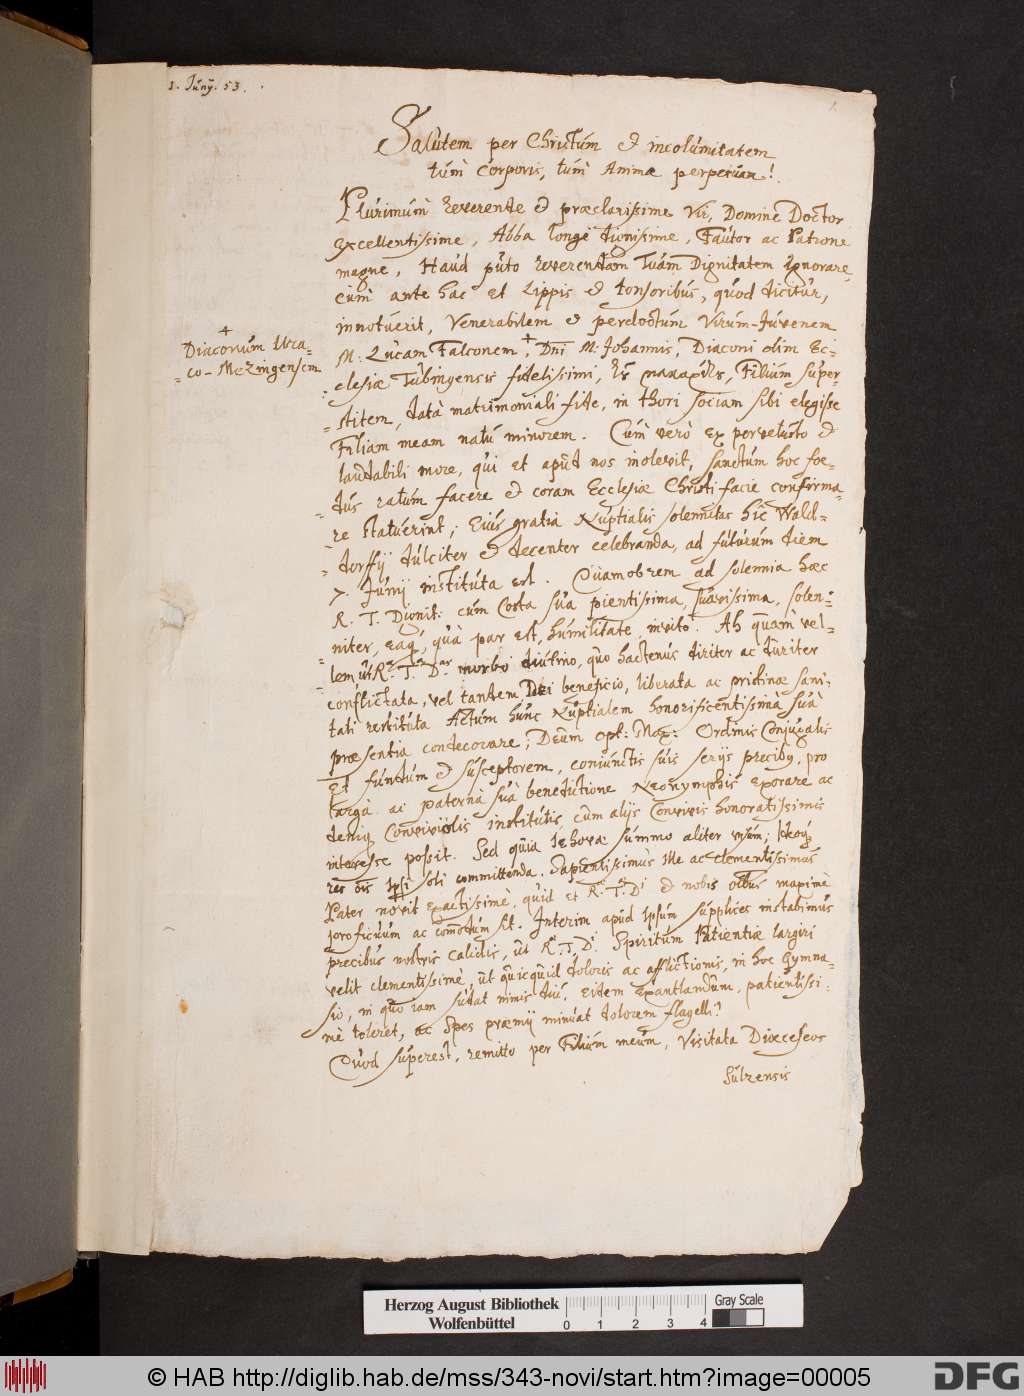 1. Junÿ. 53.
1.
Salutem per Christum et incolumitatem
tum Corporis, tum Animæ perpetuam!
Plurimum reverende et præclarissime Vir, Domine Doctor
Excellentissime, Abba longe dignissime, Fautor ac Patrone
magne, Haud puto reverendam Tuam Dignitatem ignorare,
cum ante hac et Lippis et tonsoribus, quod dicitur,
innotuerit, Venerabilem et perdoctum Virum-Juvenem
+
Diaconum Ura-
co-Mezingensem
M: Lucam Falconem +, Dni M: Johannis, Diaconi olim Ec-
clesiæ Tubingensis fidelissimi, Filium super-
stitem, data matrimoniali fide, in thori sociam sibi elegisse
Filiam meam natu minorem. Cum verò ex pervetusto et
laudabili more, qui et apud nos inolevit, sanctum hoc foe-
dus ratum facere et coram Ecclesiæ Christi facie confirma-
re statuerint; Eius gratia Nuptialis solennitas hic Wald-
dorffij dulciter et decenter celebranda, ad futurum diem
7. Junij instituta est. Quamobrem ad solennia hæc
R. T. Dignit: cum Costa sua pientissima, suavissima, solen-
niter, eaq, quà par est, humilitate invito. Ah quàm vel-
lem ut R. T. D. morbo diutino, quo hactenus diriter ac duriter
conflictata, vel tandem, Dei beneficio, liberata ac pristinæ sani-
tati restituta Actum hunc Nuptialem honorificentissima suà
præsentia condecorare; Deum opt: Max: Ordinis Conjugalis
et fundum et susceptorem, coniunctis suis serijs precibq, pro
larga ac paterna suà benedictione Neonymphis exorare ac
deniq Conviviolis institutis cum alijs Convivis honoratissimis
interesse possit. Sed quia Jehovæ summo aliter visum;
res ois Ipsi soli committenda. Sapientissimus Ille ac clementissimus
Pater novit exactissimè, quid et R. T. D. et nobis oibus maximè
proficuum ac comodum sit. Interim apud Ipsum supplices instabimus
precibus nostris calidis, ut R. T. D. Spiritum Patientiæ largiri
velit clementissimè, ut quicquid doloris ac afflictionis, in hoc Gymna-
sio, in quo iam sudat nimis diu, Eidem exantlandum, patientissi-
mè toleret, ac spes præmij minuat dolorem flagelli?
Quod superest, remitto per Filium meum, Visitata Dioeceseos
Sulzensis
Herzog August Bibliothek
Wolfenbüttel
0 1 2 3 4
Gray Scale
© HAB http://diglib.hab.de/mss/343-novi/start.htm?image=00005
DFG